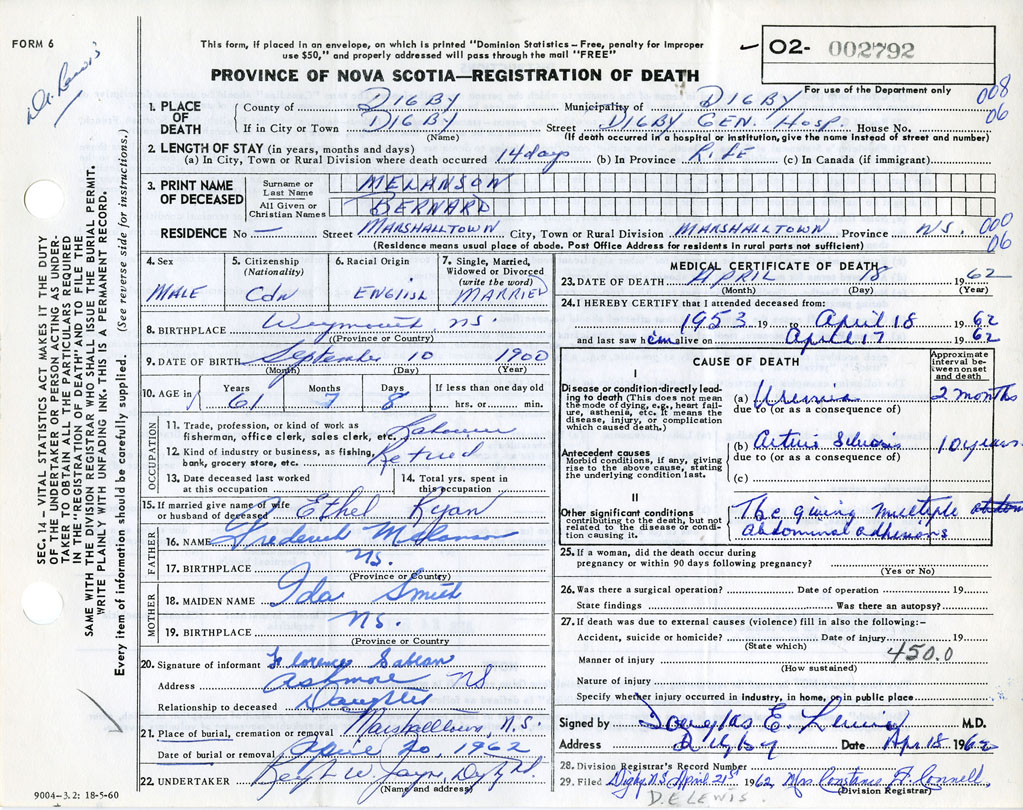 FORM 6
Dr. Lewis
This form, if placed in an envelope, on which is printed "Dominion Statistics – Free, penalty for improper
use $50," and properly addressed will pass through the mail "FREE"
O2- 002792
PROVINCE OF NOVA SCOTIA—REGISTRATION OF DEATH
For use of the Department only
008
06
1. PLACE OF DEATH
County of DIGBY Municipality of DIGBY
If in City or Town DIGBY Street DIGBY GEN. HOSP. House No.
(Name) (If death occurred in a hospital or institution, give the name instead of street and number)
2. LENGTH OF STAY (in years, months and days)
(a) In City, Town or Rural Division where death occurred 14 days (b) In Province LIFE (c) In Canada (if immigrant)
3. PRINT NAME OF DECEASED
Surname or Last Name MELANSON
All Given or Christian Names BERNARD
RESIDENCE No — Street MARSHALLTOWN City, Town or Rural Division MARSHALLTOWN Province N/S.
000
06
(Residence means usual place of abode. Post Office Address for residents in rural parts not sufficient)
4. Sex MALE
5. Citizenship (Nationality) CDN
6. Racial Origin ENGLISH
7. Single, Married, Widowed or Divorced (write the word) MARRIED
8. BIRTHPLACE Weymouth, NS.
(Province or Country)
9. DATE OF BIRTH September 10 1900
(Month) (Day) (Year)
10. AGE in Years 61 Months 7 Days 8 If less than one day old hrs. or min.
OCCUPATION
11. Trade, profession, or kind of work as fisherman, office clerk, sales clerk, etc. Labourer
12. Kind of industry or business, as fishing, bank, grocery store, etc. Retired
13. Date deceased last worked at this occupation
14. Total yrs. spent in this occupation
15. If married give name of wife or husband of deceased Ethel Ryan
FATHER
16. NAME Frederick Melanson
17. BIRTHPLACE NS.
(Province or Country)
MOTHER
18. MAIDEN NAME Ida Smith
19. BIRTHPLACE NS.
(Province or Country
20. Signature of informant Florence
Address Ashmore NS
Relationship to deceased Daughter
21. Place of burial, cremation or removal Marshalltown, N.S.
Date of burial or removal April 20, 1962
22. UNDERTAKER W. Jayne,
(Name and address)
9004–3.2: 18-5-60
SEC. 14 — VITAL STATISTICS ACT MAKES IT THE DUTY
OF THE UNDERTAKER OR PERSON ACTING AS UNDER-
TAKER TO OBTAIN ALL THE PARTICULARS REQUIRED
IN THE "REGISTRATION OF DEATH" AND TO FILE THE
SAME WITH THE DIVISION REGISTRAR WHO SHALL ISSUE THE BURIAL PERMIT.
WRITE PLAINLY WITH UNFADING INK. THIS IS A PERMANENT RECORD.
Every item of information should be carefully supplied. (See reverse side for instructions.)
MEDICAL CERTIFICATE OF DEATH
23. DATE OF DEATH APRIL 18 1962
(Month) (Day) (Year)
24. I HEREBY CERTIFY that I attended deceased from:
1953 19 to April 18 1962
and last saw him alive on April 17 1962
CAUSE OF DEATH
Approximate interval between onset and death
I
Disease or condition directly leading to death (This does not mean the mode of dying, e.g., heart failure, asthenia, etc. It means the disease, injury, or complication which caused death.)
(a) Uremia 2 months
due to (or as a consequence of)
Antecedent causes
Morbid conditions, if any, giving rise to the above cause, stating the underlying condition last.
(b) Arterio Sclerosis 10 years
due to (or as a consequence of)
(c)
II
Other significant conditions
contributing to the death, but not related to the disease or condition causing it.
giving multiple
abdominal adhesions
25. If a woman, did the death occur during
pregnancy or within 90 days following pregnancy?
(Yes or No)
26. Was there a surgical operation? Date of operation 19
State findings Was there an autopsy?
27. If death was due to external causes (violence) fill in also the following:–
Accident, suicide or homicide? Date of injury 19
(State which) 450.0
Manner of injury
(How sustained)
Nature of injury
Specify whether injury occurred in industry, in home, or in public place
Signed by Douglas E. Lewis M.D.
Address Digby Date Apr. 18 1962
28. Division Registrar's Record Number
29. Filed Digby NS April 21st 1962 Mrs. Constance F. Connell
(Division Registrar)
D.E LEWIS.